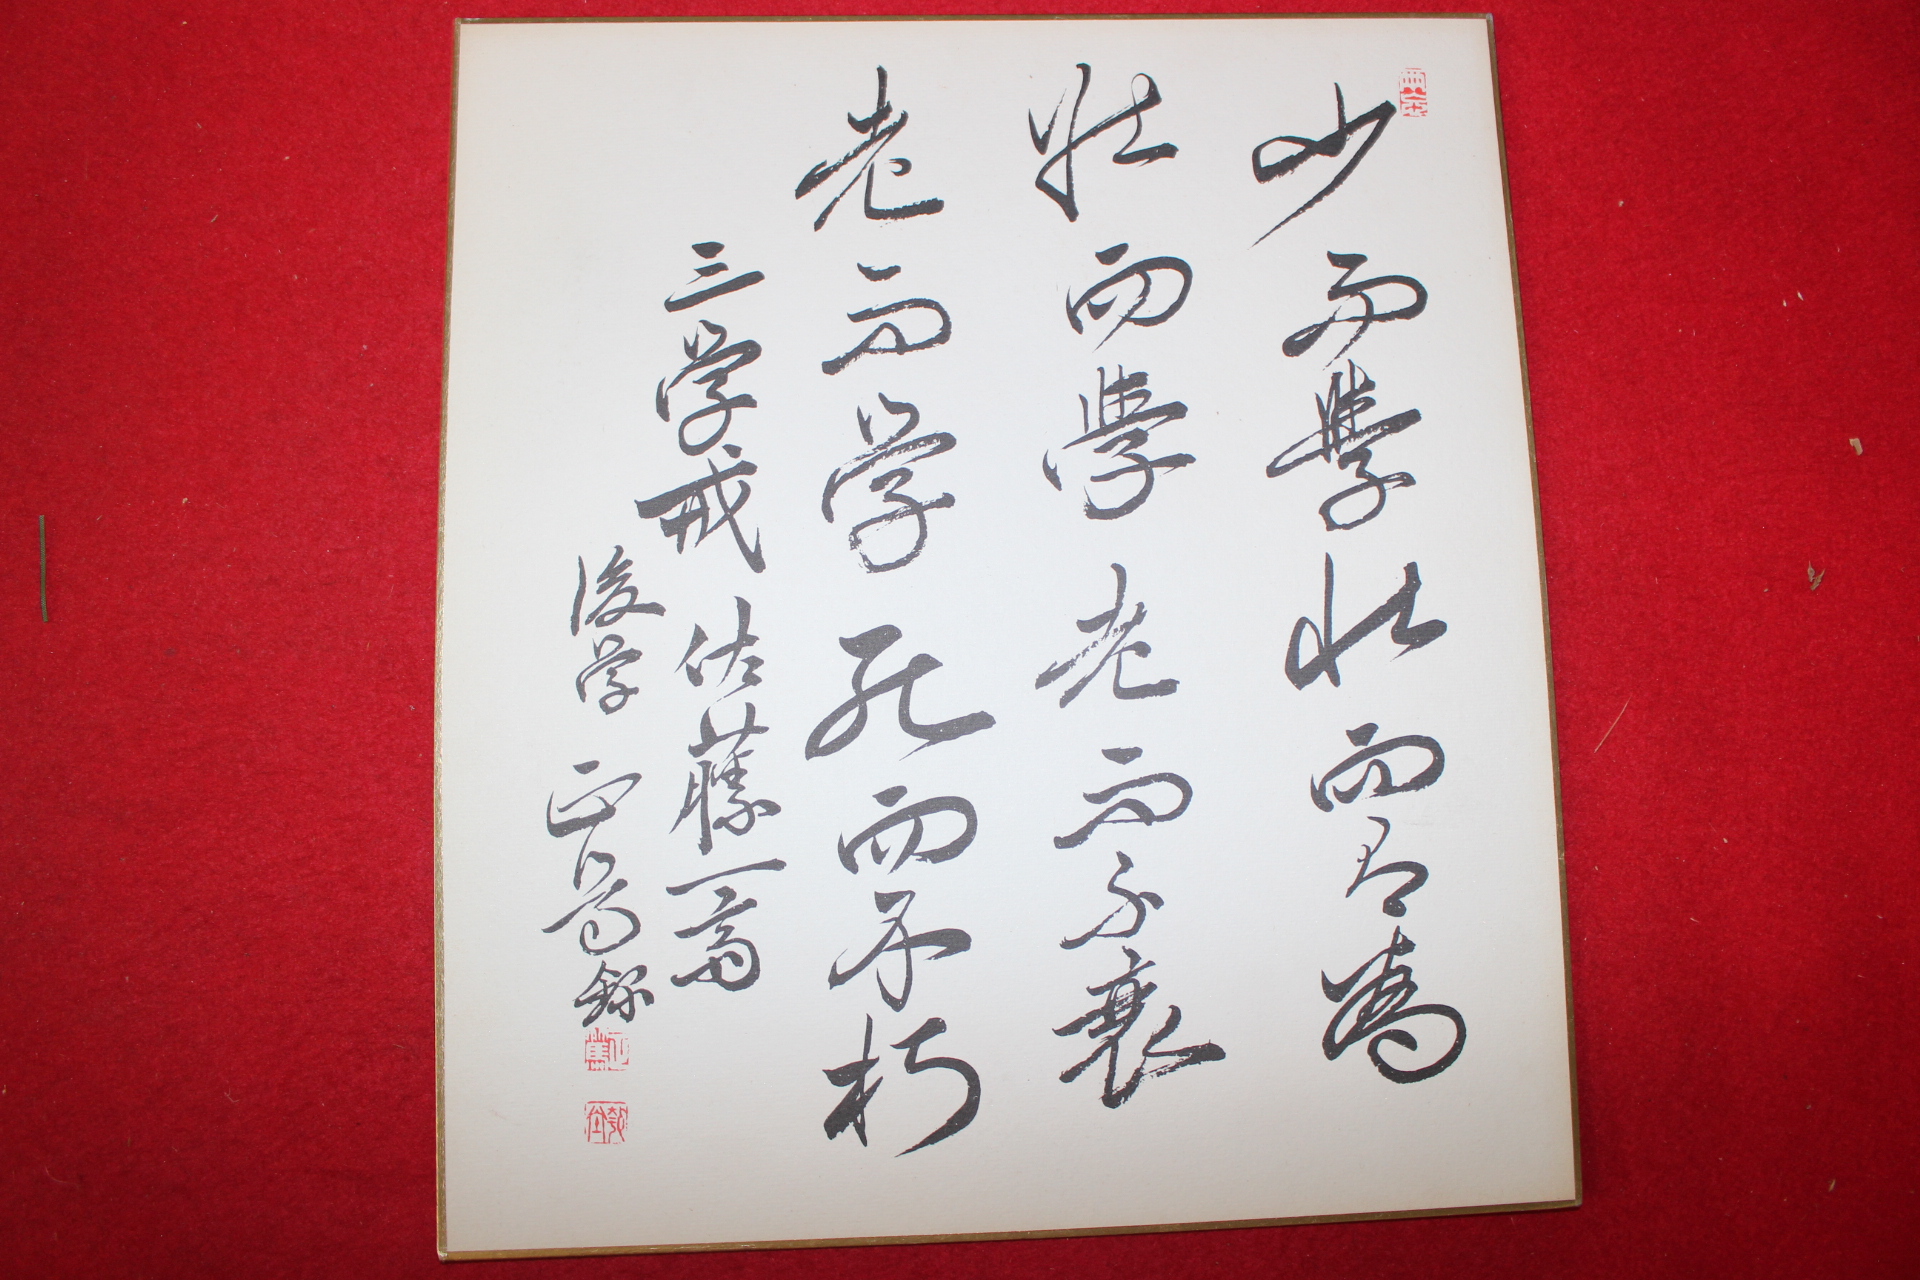 少而學壯而有為
壯而學老而不衰
老而学死而不朽
三学戒 佐藤一斎
後学 正篤録